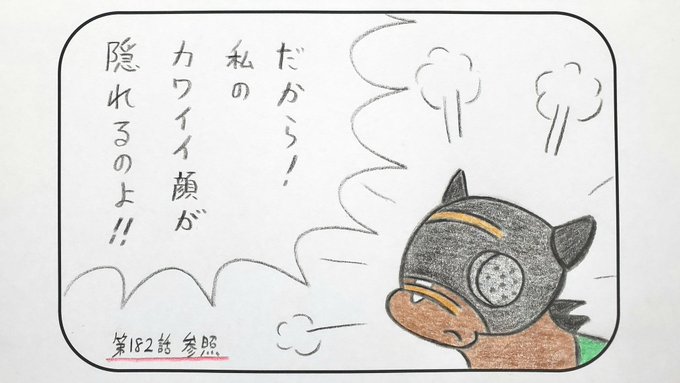 だから！
私の
カワイイ顔が
隠れるのよ!!
第182話 参照